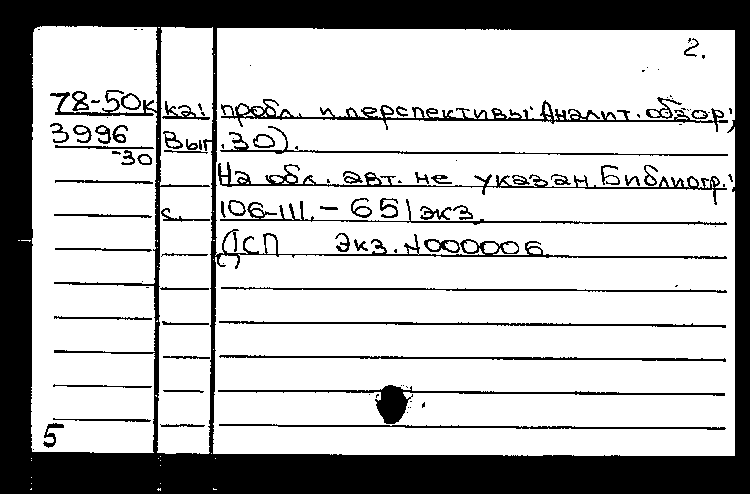 2.
78-50к ка: пробл. и перспективы: Аналит. обзор;
3996 Вып. 30).
-30
На обл. авт. не указан. Библиогр.:
с. 106-111. - 651 экз.
ДСП Экз. N000006
5